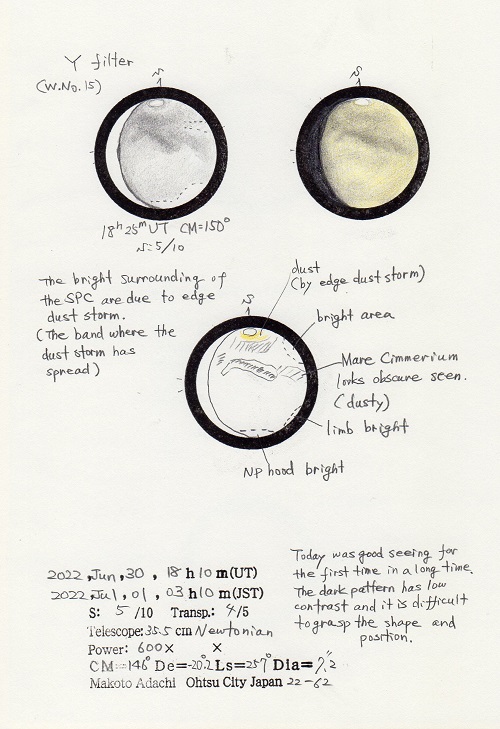 Y filter
(W.No.15)
S
S
18h 25m UT CM=150°
S=5/10
The bright surrounding of
the SPC are due to edge
dust storm.
(The band where the
dust storm has
spread)
S
dust
(by edge dust storm)
bright area
Mare Cimmerium
looks obscure seen.
(dusty)
limb bright
NP hood bright
2022, Jun, 30, 18 h 10 m (UT)
2022, Jul, 01, 03 h 10 m (JST)
S: 5 /10 Transp.: 4/5
Telescope: 35.5 cm Newtonian
Power: 600× ×
CM=146° De=-20.2 Ls=257° Dia=7.2
Makoto Adachi Ohtsu City Japan 22-62
Today was good seeing for
the first time in a long time.
The dark pattern has low
contrast and it is difficult
to grasp the shape and
position.